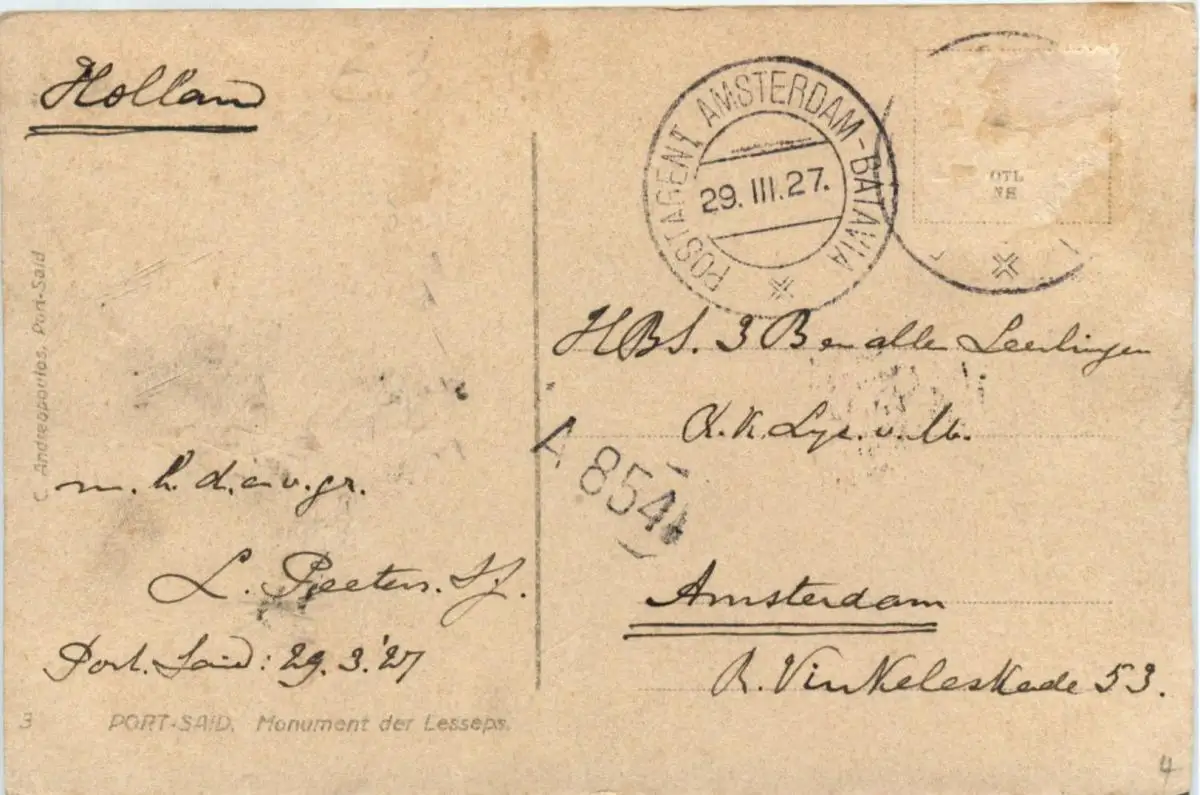 Holland
POSTAGENT AMSTERDAM-BATAVIA
29.III.27.
OTL
NE
HBS. 3 B en alle Leerlingen
R.K. Lyc. v. M.
A 854
Amsterdam
R. Vinkeleskade 53.
m. h. d. a v. gr.
L. Peeters. S.J.
Port. Said: 29.3.'27
C. Andreopoulos, Port-Said
3 PORT-SAID. Monument der Lesseps.
4